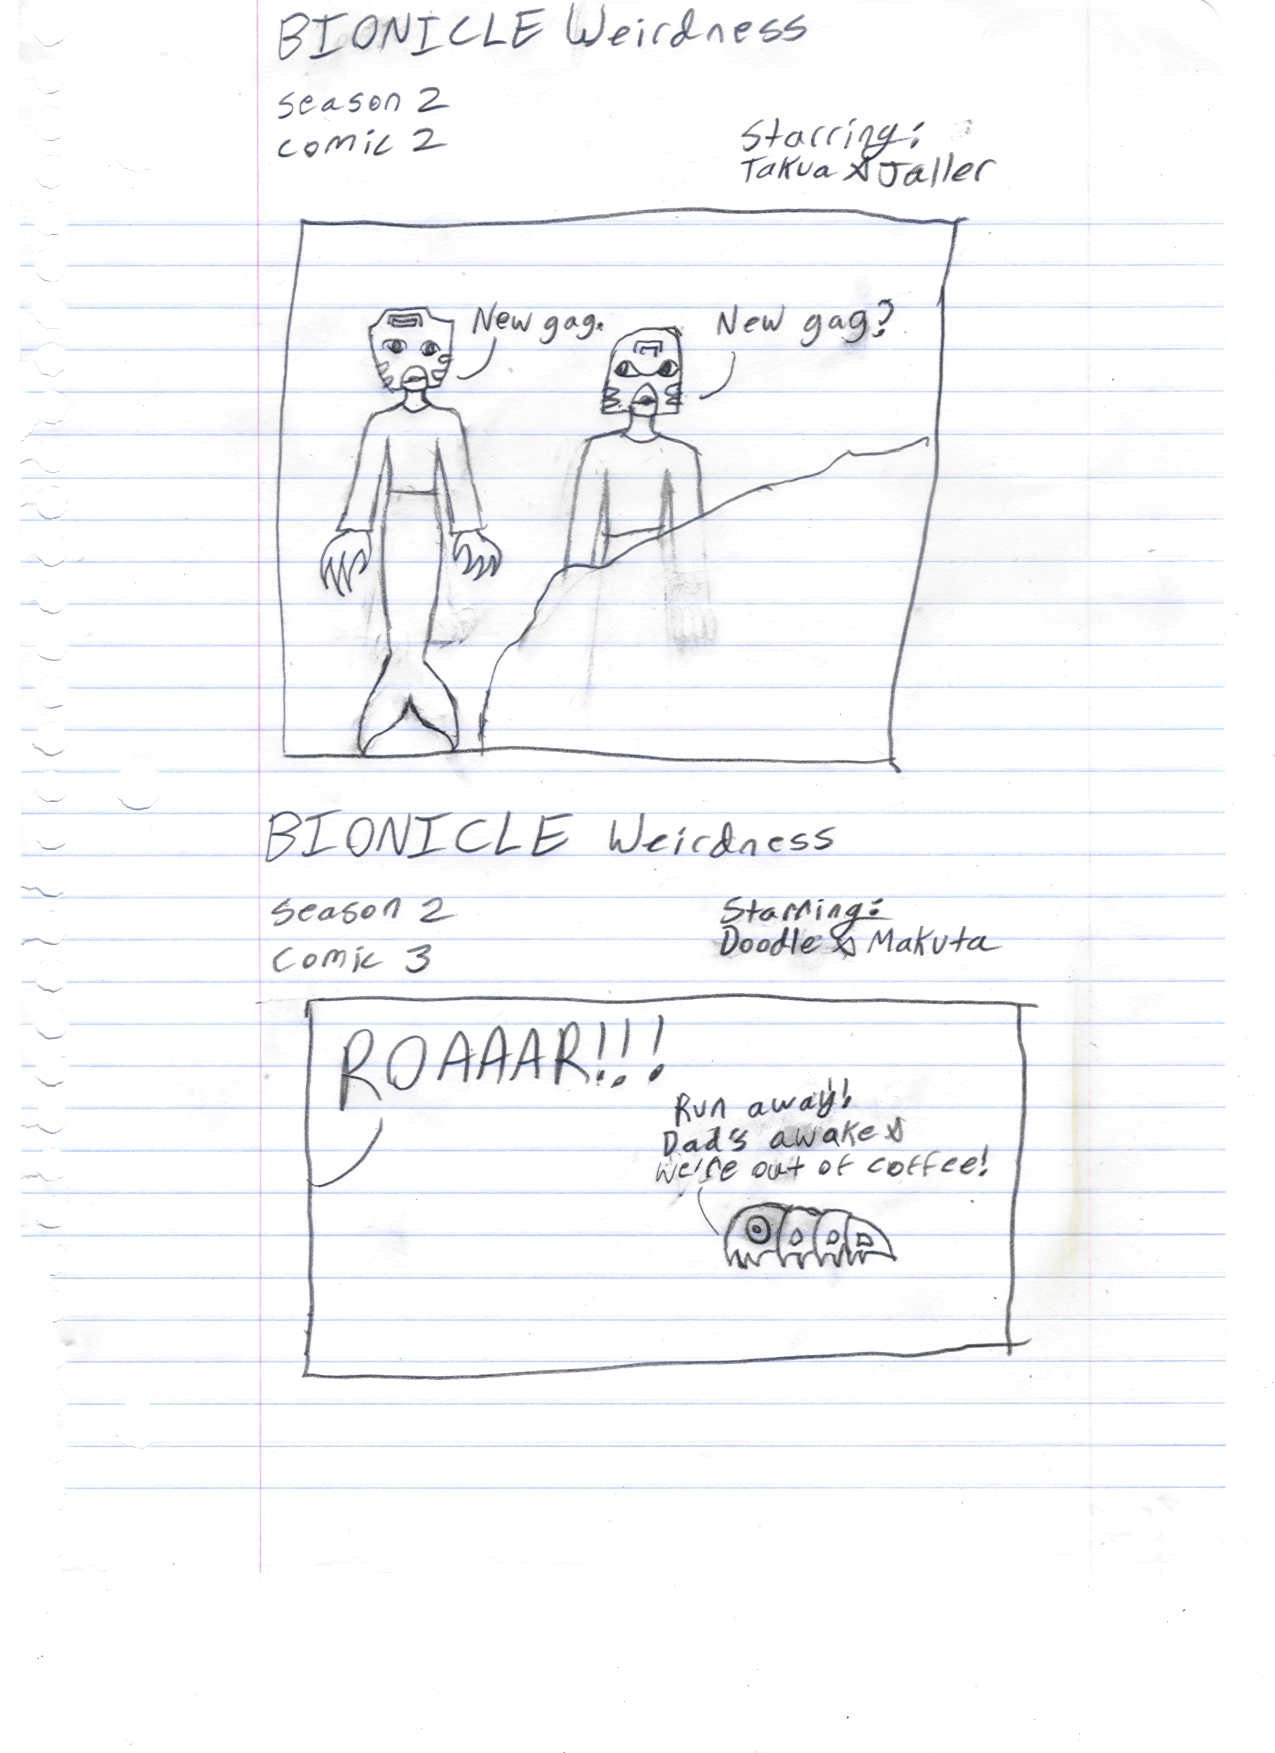 BIONICLE Weirdness
season 2
comic 2
Starring:
Takua & Jaller
New gag.
New gag?
BIONICLE Weirdness
season 2
comic 3
Starring:
Doodle & Makuta
ROAAAR!!!
Run away!
Dad's awake &
we're out of coffee!